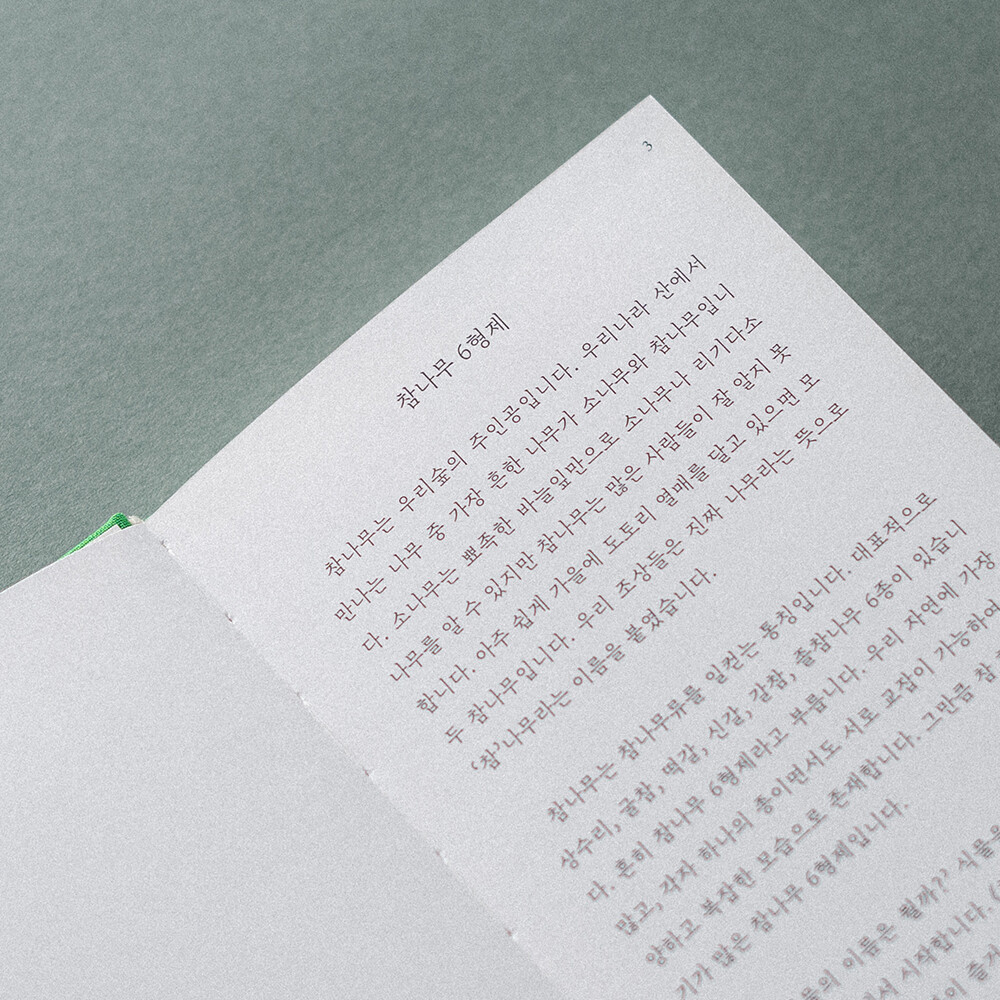 3
참나무 6형제
참나무는 우리숲의 주인공입니다. 우리나라 산에서
만나는 나무 중 가장 흔한 나무가 소나무와 참나무입니
다. 소나무는 뾰족한 바늘잎만으로 소나무나 리기다소
나무를 알 수 있지만 참나무는 많은 사람들이 잘 알지 못
합니다. 아주 쉽게 가을에 도토리 열매를 달고 있으면 모
두 참나무입니다. 우리 조상들은 진짜 나무라는 뜻으로
‘참’나무라는 이름을 붙였습니다.
참나무는 참나무류를 일컫는 통칭입니다. 대표적으로
상수리, 굴참, 떡갈, 신갈, 갈참, 졸참나무 6종이 있습니
다. 흔히 참나무 6형제라고 부릅니다. 우리 자연에 가장
많고, 각자 하나의 종이면서도 서로 교잡이 가능하여
양하고 복잡한 모습으로 존재합니다. 그만큼 참
기가 많은 참나무 6형제입니다.
들의 이름은 뭘까?’ 식물을
서 시작합니다.
이 즐거